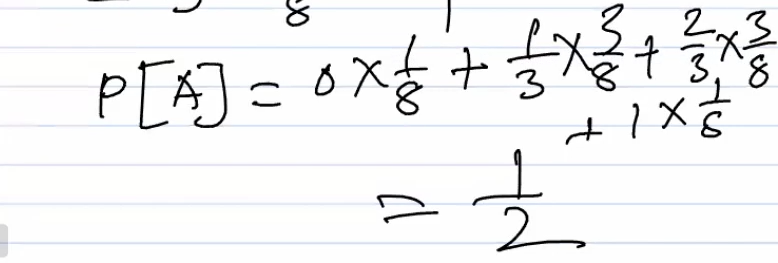 8
P[A] = 0 × 1/8 + 1/3 × 3/8 + 2/3 × 3/8
+ 1 × 1/8
= 1/2